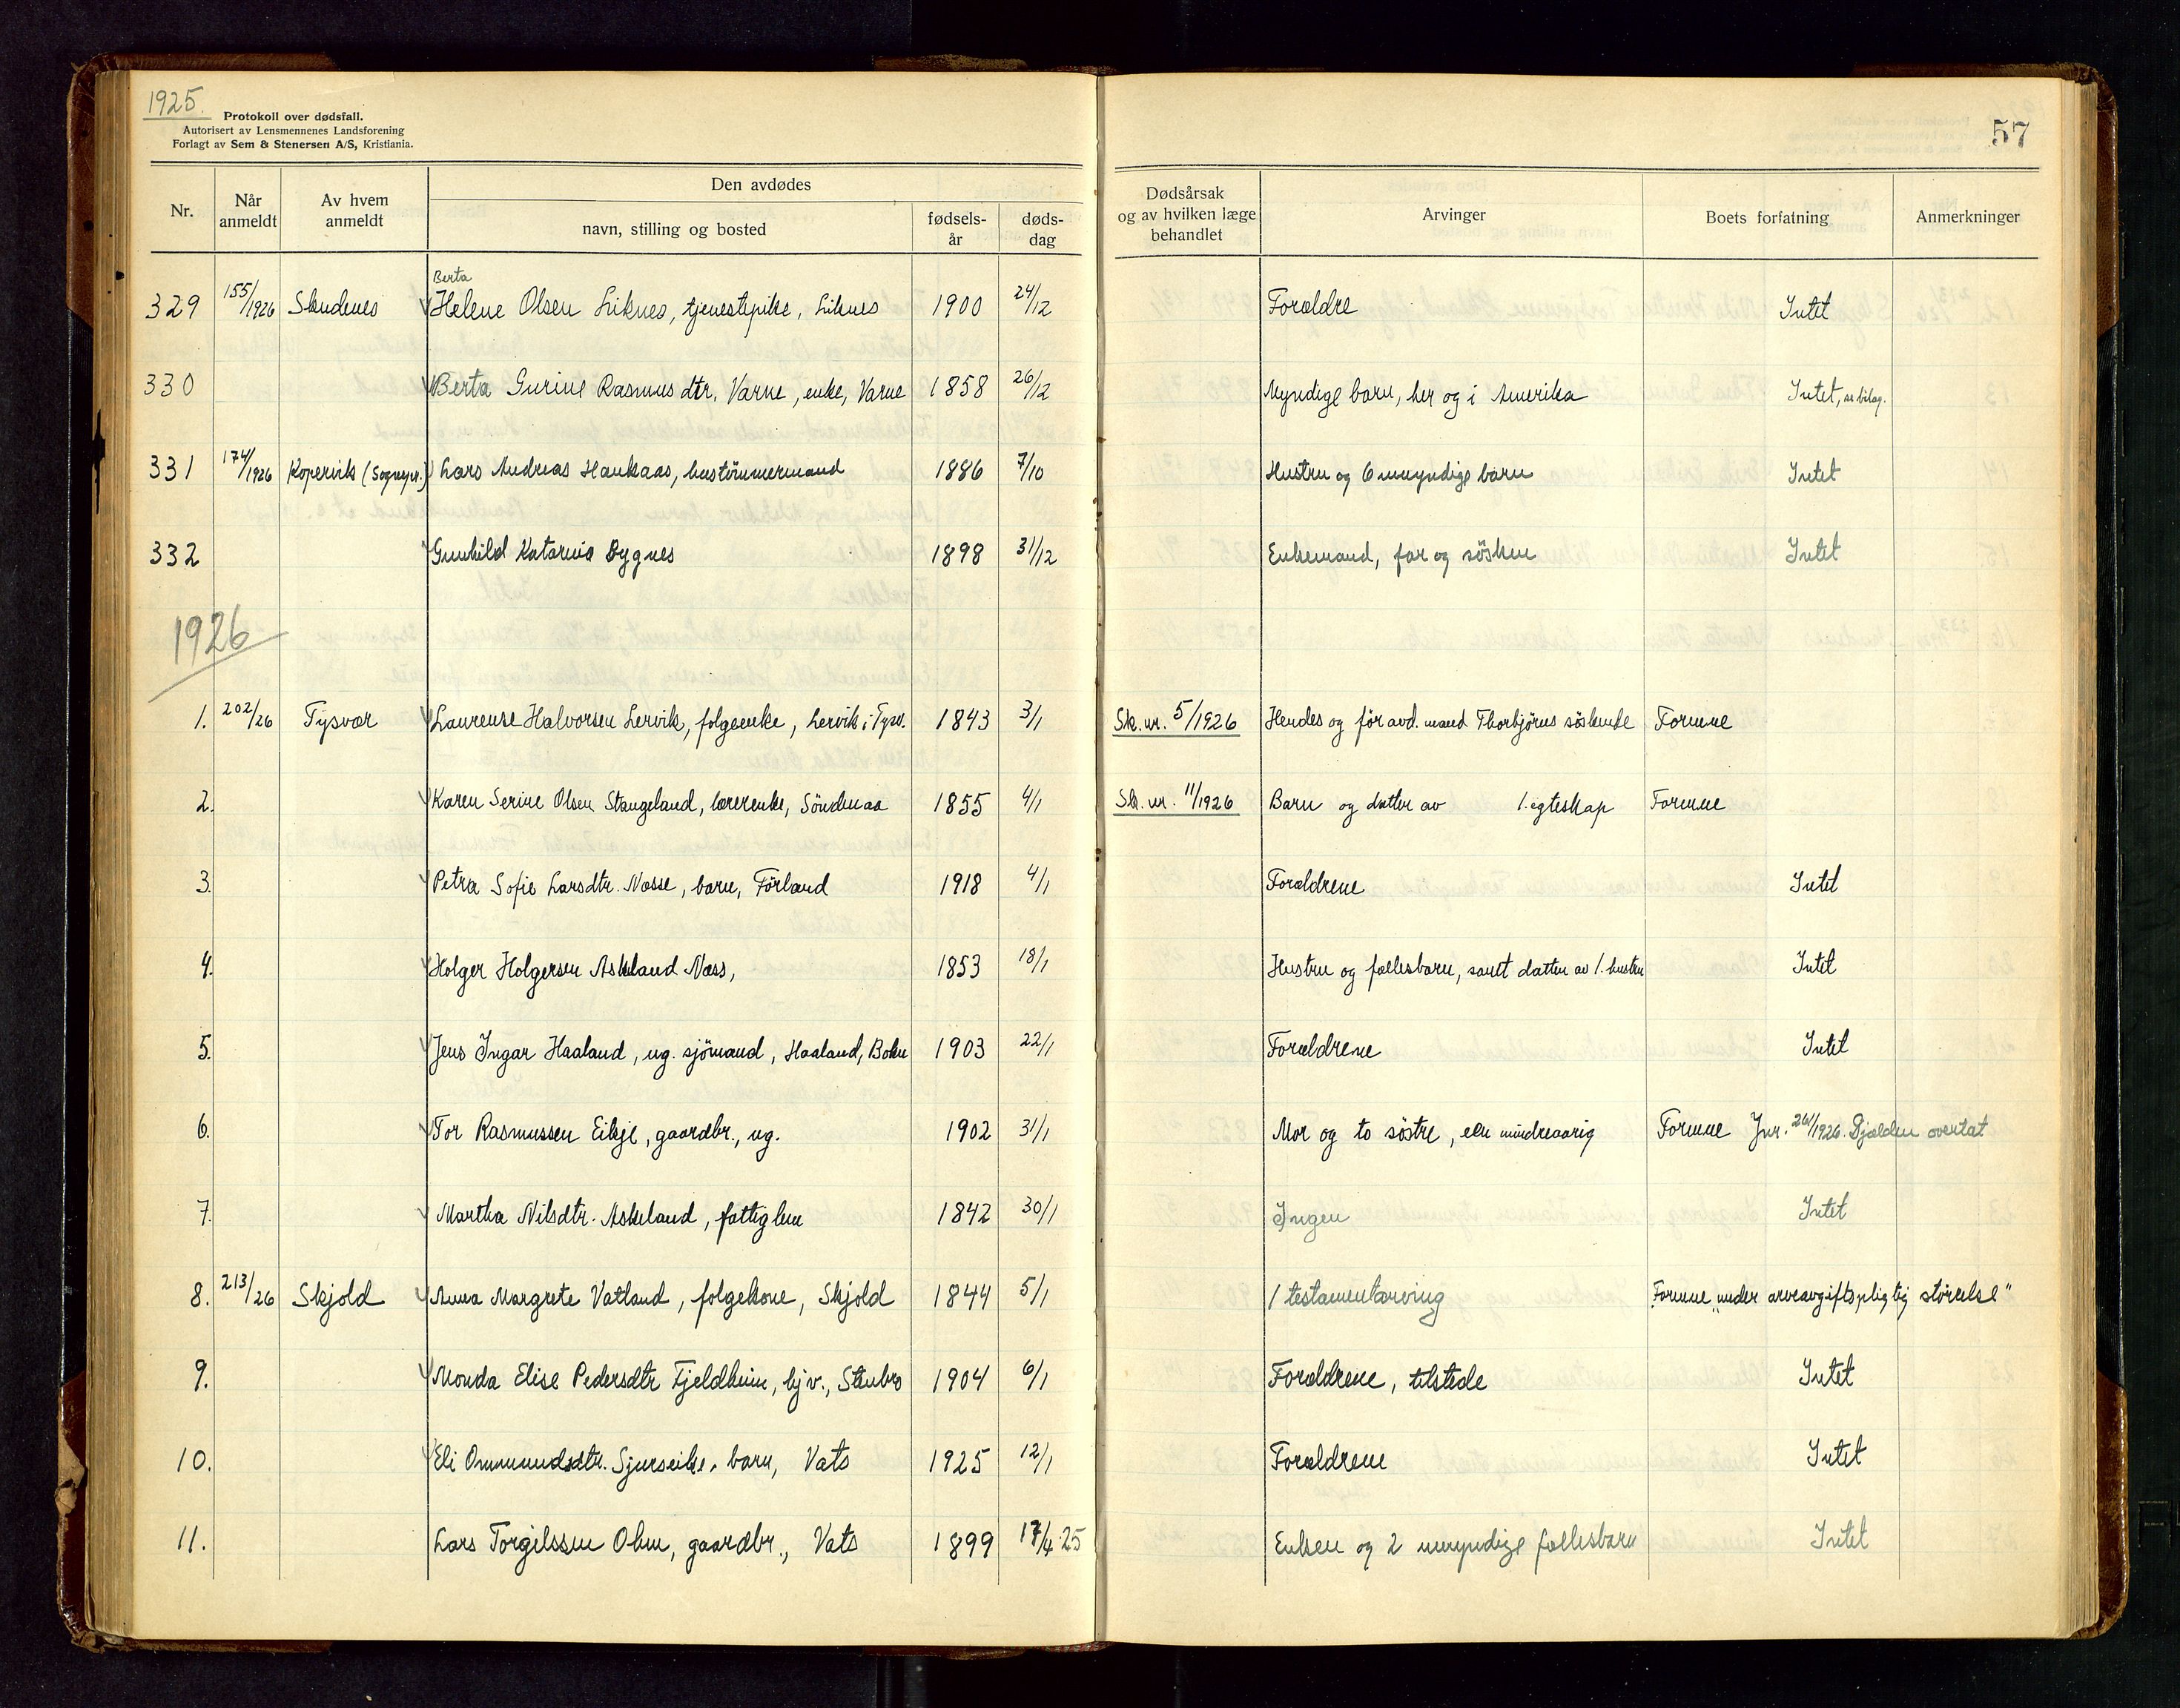 1925.
Protokoll over dødsfall.
Autorisert av Lensmennenes Landsforening
Forlagt av Sem & Stenersen A/S, Kristiania.
57
Nr. Når anmeldt Av hvem anmeldt Den avdødes navn, stilling og bosted fødsels-år døds-dag Dødsårsak og av hvilken læge behandlet Arvinger Boets forfatning Anmerkninger
Berta
329 155/1926 Skudenes Helene Olsen Liknes, tjenestepike, Liknes 1900 24/12 Forældre Intet
330 Berta Gurine Rasmusdtr. Varne, enke, Varne 1858 26/12 Myndige barn, her og i Amerika Intet, se bilag.
331 174/1926 Kopervik (Sognepr.) Lars Andreas Haukaas, hustømmermand 1886 7/10 Hustru og 6 umyndige barn Intet
332 Gunhild Katarina Bygnes 1898 31/12 Enkemand, far og søsken Intet
1926
1. 202/26 Tysvær Laurense Halvorsen Lervik, folgeenke, Lervik i Tysv. 1843 3/1 Sk. nr. 5/1926 Hendes og før avd. mand Thorbjørns søskende Formue
2. Karen Serine Olsen Stangeland, lærerenke, Søndenaa 1855 4/1 Sk. nr. 11/1926 Barn og datter av 1. egteskap Formue
3. Petra Sofie Larsdtr. Næsse, barn, Førland 1918 4/1 Forældrene Intet
4. Holger Holgersen Askeland Næss, 1853 18/1 Hustru og fællesbarn, samt datter av 1. hustru Intet
5. Jens Ingar Haaland, ug. sjømand, Haaland, Bokn 1903 22/1 Forældrene Intet
6. Tor Rasmussen Eikje, gaardbr., ug. 1902 31/1 Mor og to søstre, en mindreaarig Formue Jnr. 261/1926. Gjælden overtat
7. Martha Nilsdtr. Askeland, fattiglem 1842 30/1 Ingen Intet
8. 213/26 Skjold Anna Margrete Vatland, folgekone, Skjold 1844 5/1 1 testamentarving Formue „under arveavgiftspligtig størelse"
9. Monda Elise Pedersdtr Fjeldheim, hjv., Stenbro 1904 6/1 Forældrene, tilstede Intet
10. Eli Ommundsdtr. Sjurseike, barn, Vats 1925 12/1 Forældrene Intet
11. Lars Torgilssen Ohm, gaardbr., Vats 1899 17/4 25 Enken og 2 umyndige fællesbarn Intet